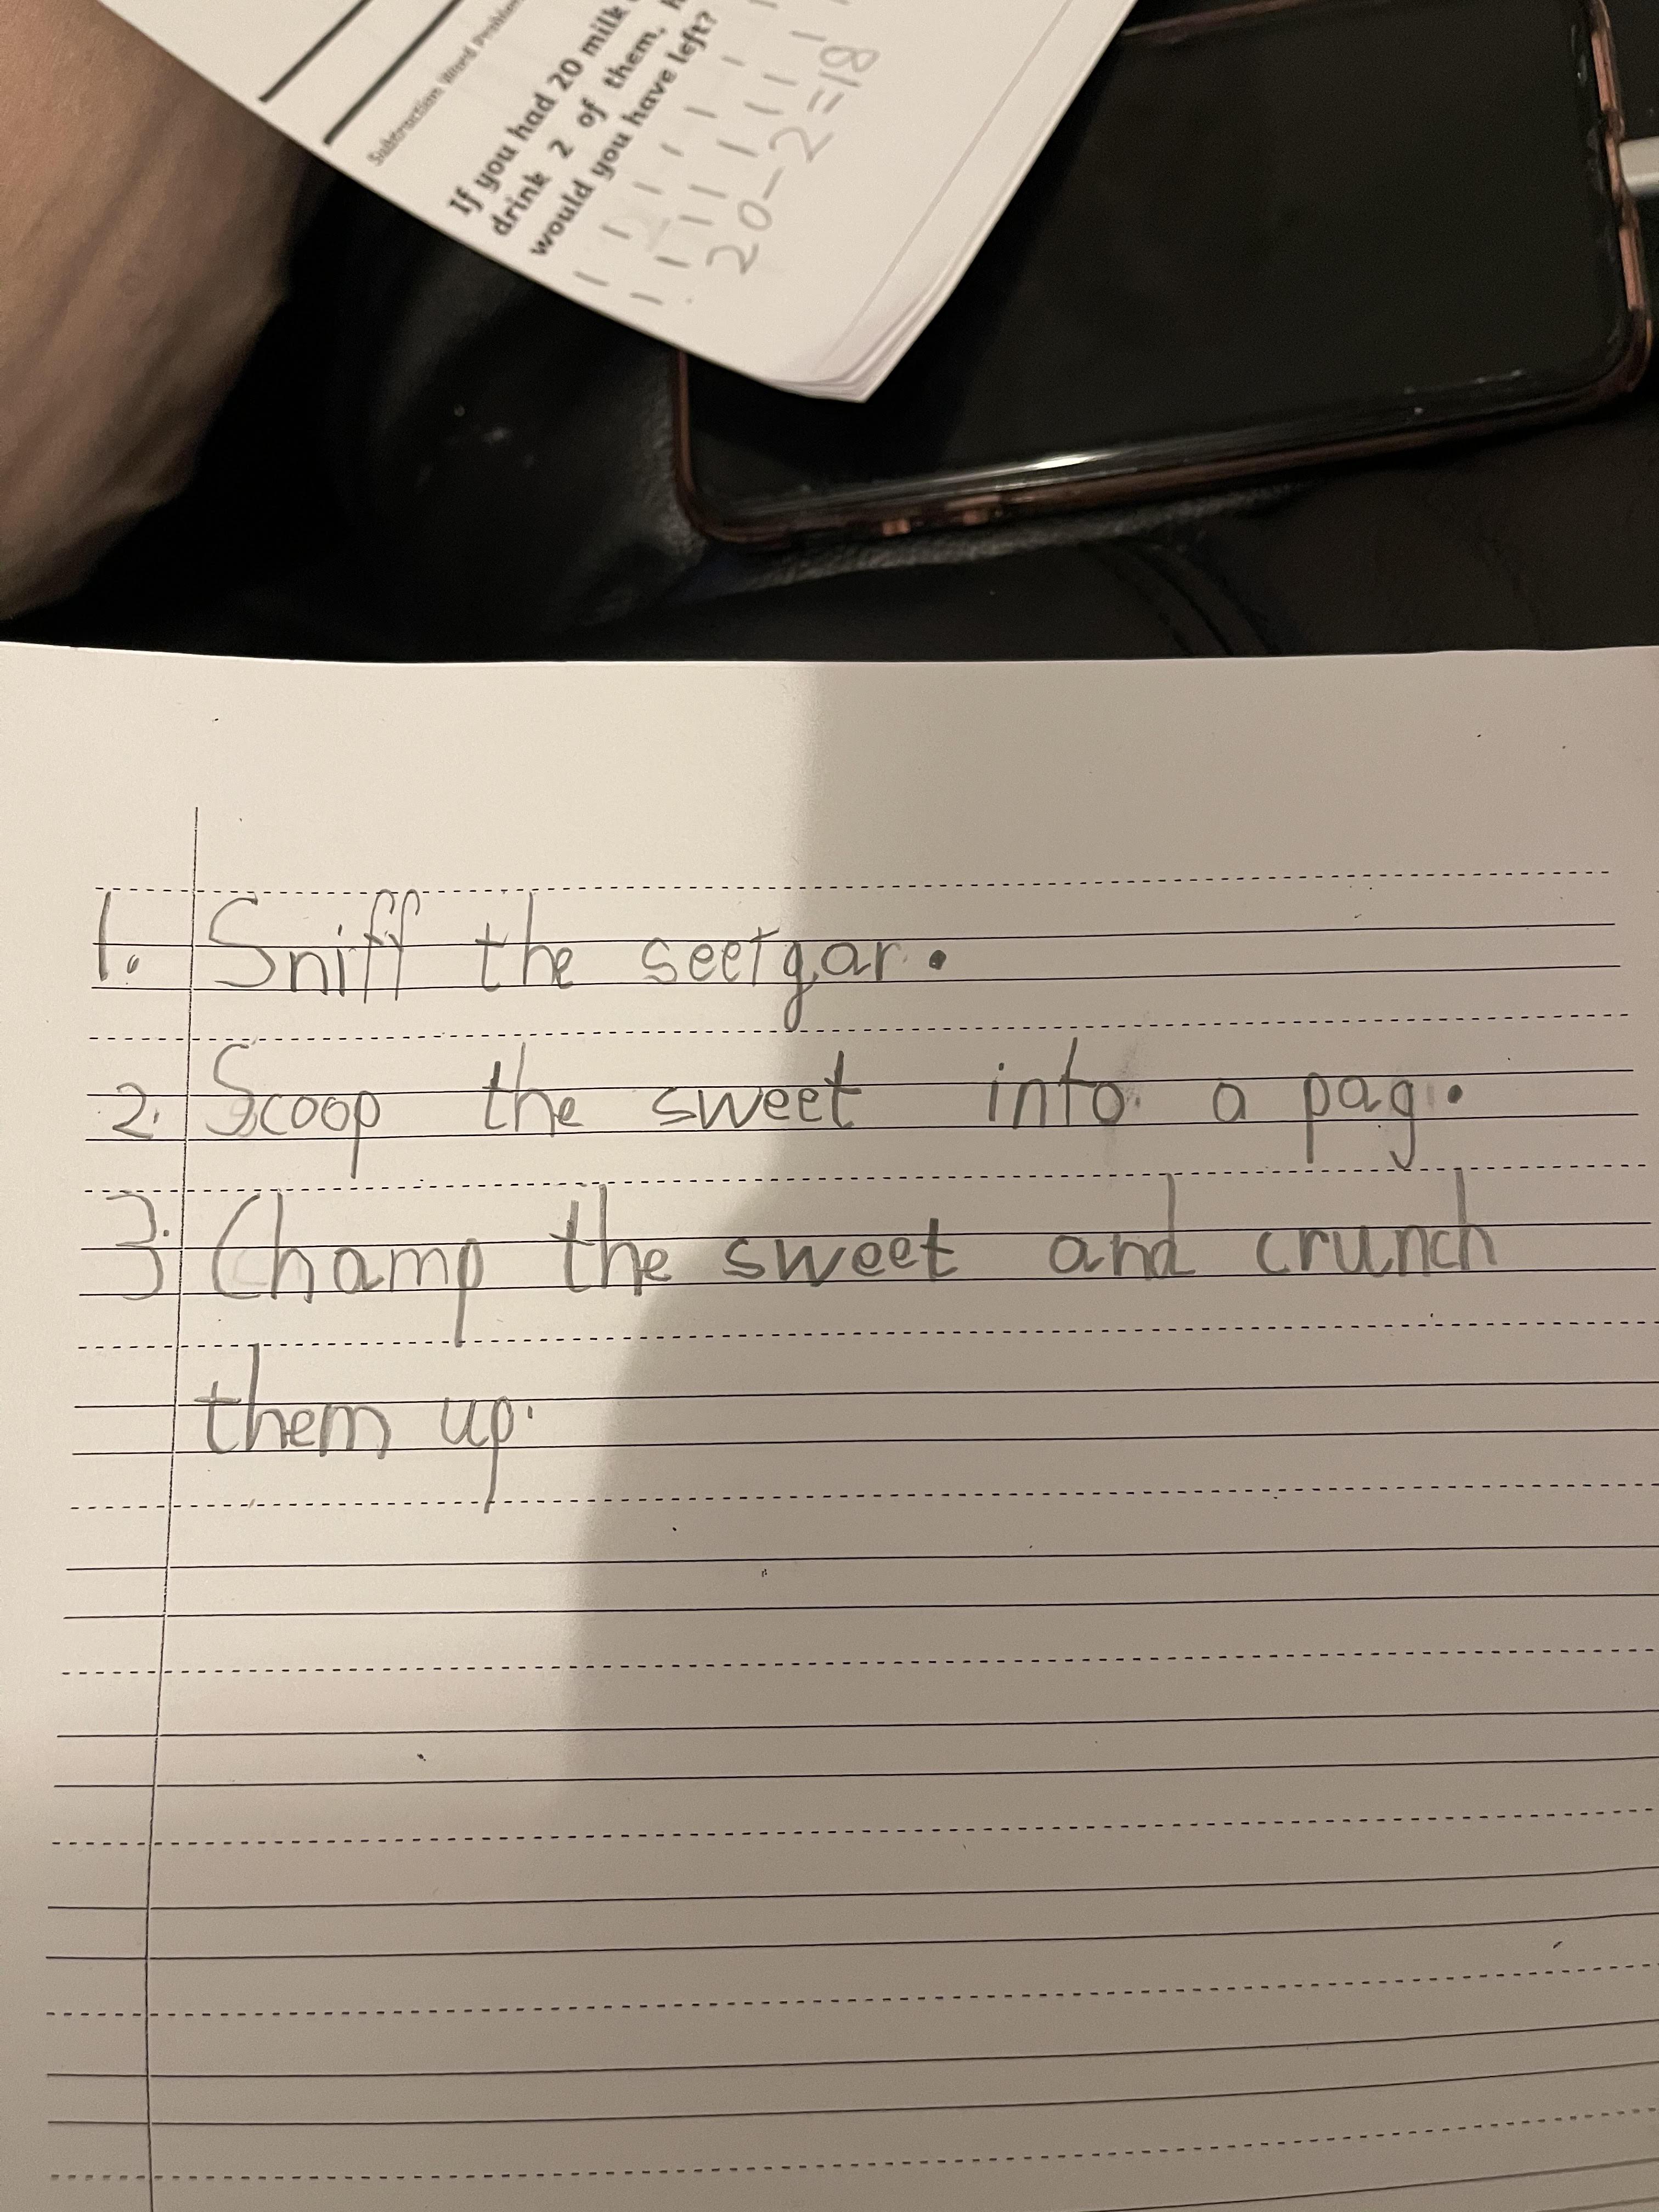 Subtraction Word Problem
If you had 20 milk
drink 2 of them,
would you have left?
20-2=18
1. Sniff the seetgar.
2. Scoop the sweet into a pag.
3. Champ the sweet and crunch
them up.